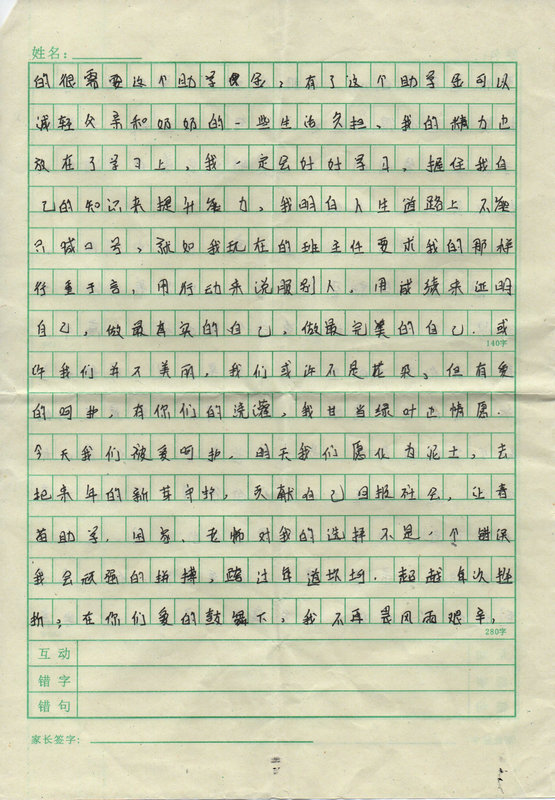 姓名：
的很需要这个助学金，有了这个助学金可以
减轻父亲和奶奶的一些生活负担，我的精力也
放在了学习上，我一定会好好学习，握住我自
己的知识来提升能力，我明白人生道路上不能
只喊口号，就如我现在的班主任要求我的那样
行重于言，用行动来说服别人，用成绩来证明
自己，做最真实的自己，做最完美的自己.或
140字
许我们并不美丽，我们或许不是花朵，但有爱
的呵护，有你们的浇灌，我甘当绿叶也情愿.
今天我们被爱呵护，明天我们愿化为泥土，去
把来年的新芽守护，贡献自己回报社会，让青
苗助学，国家，老师对我的选择不是一个错误
我会顽强的拼搏，踏过年道坎坷.超越年次挫
折；在你们爱的鼓舞下，我不再畏风雨艰辛，
280字
互动
错字
错句
家长签字：